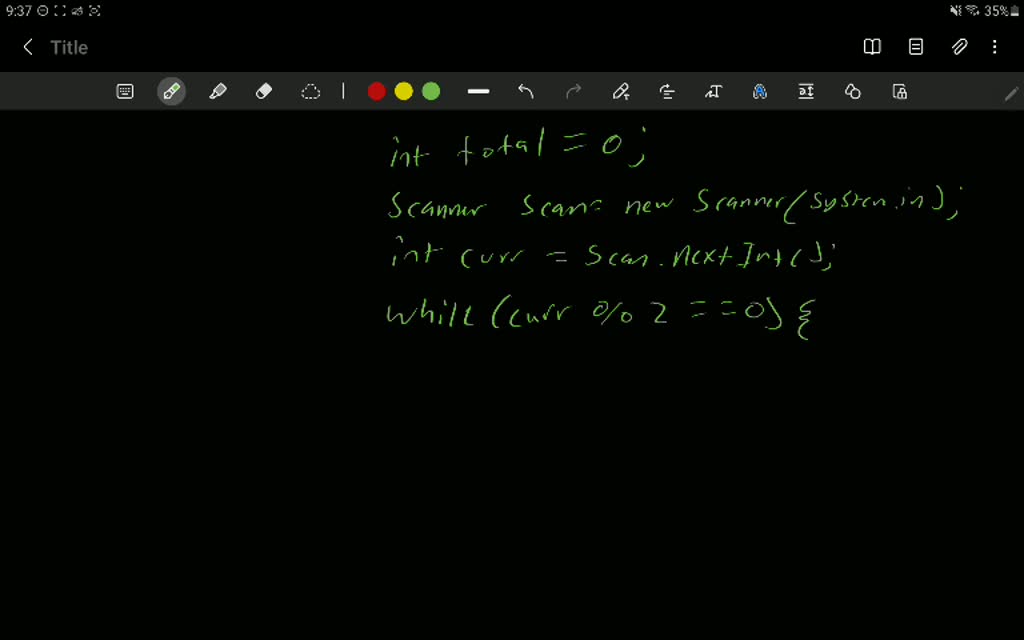 9:37 35%
Title
int total = 0;
Scanner scan = new Scanner(System.in);
int curr = scan.nextInt();
while (curr % 2 == 0) {